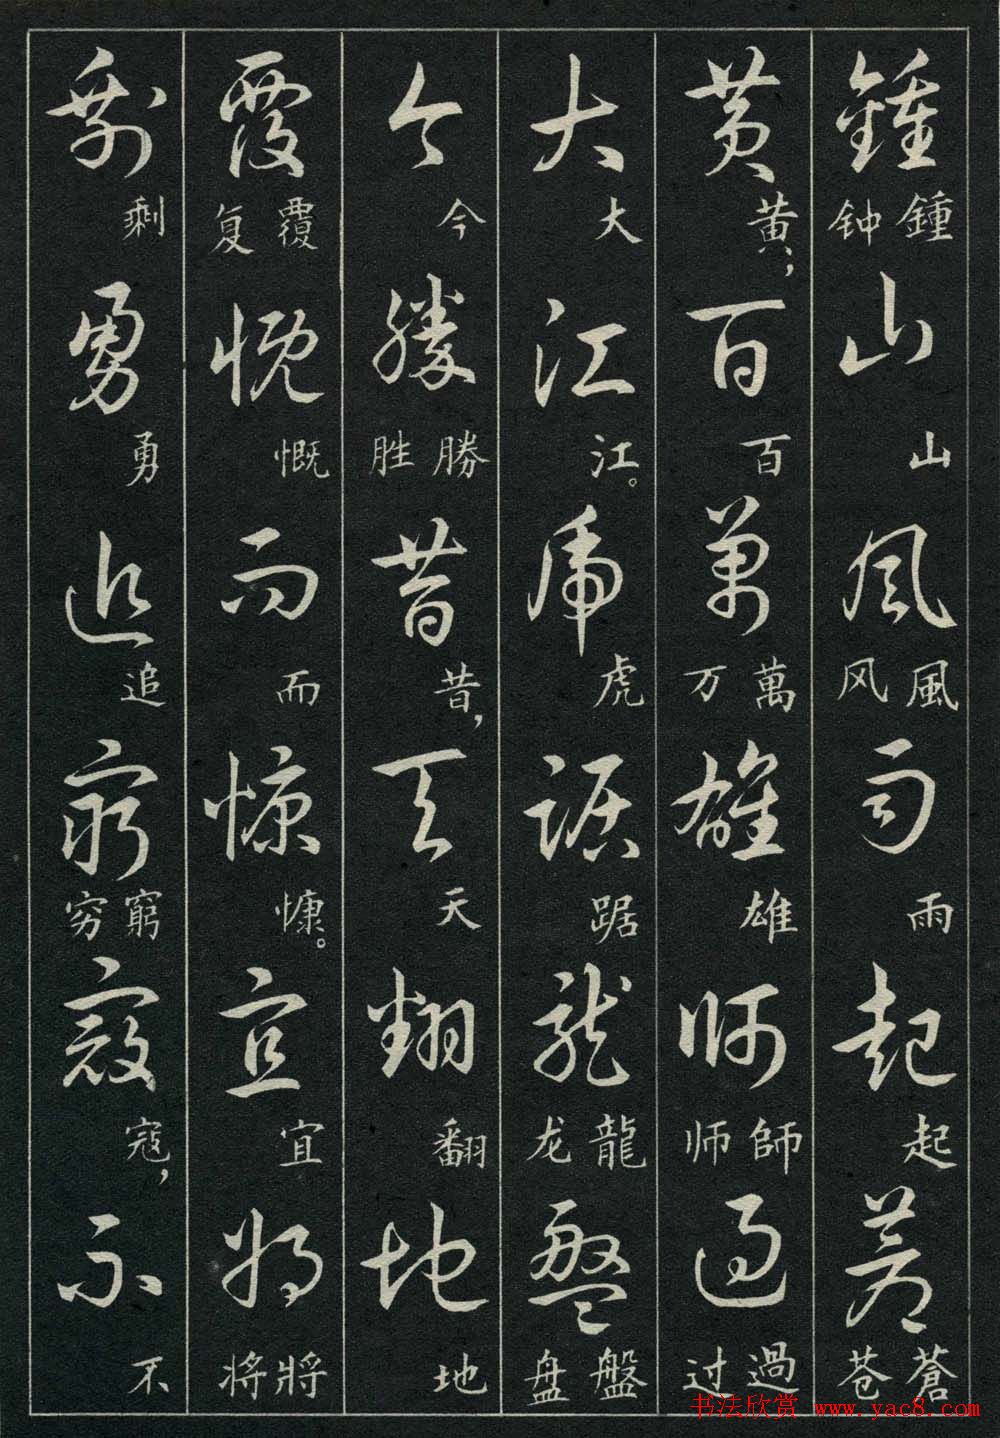 鍾山風雨起蒼
鍾钟 山 風风 雨 起 蒼苍
黄百萬雄師過
黄， 百 萬万 雄 師师 過过
大江虎踞龍盤
大 江。 虎 踞 龍龙 盤盘
今勝昔天翻地
今 勝胜 昔， 天 翻 地
覆慨而慷宜將
覆复 慨 而 慷。 宜 將将
剩勇追窮寇不
剩 勇 追 窮穷 寇， 不
书法欣赏 www.yac8.com